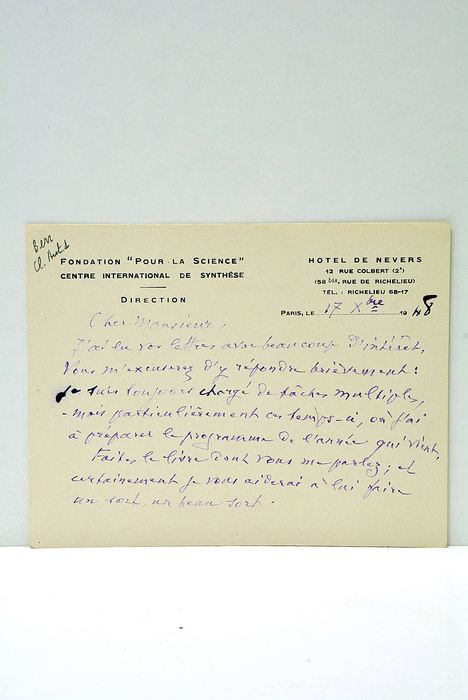 Berr
FONDATION "POUR LA SCIENCE"
CENTRE INTERNATIONAL DE SYNTHÈSE
DIRECTION
HOTEL DE NEVERS
12 RUE COLBERT (2ᵉ)
(58 bis, RUE DE RICHELIEU)
TÉL. : RICHELIEU 68-17
PARIS, LE 17 Xbre 1948
Cher Monsieur,
J'ai lu vos lettres avec beaucoup d'intérêt.
Vous m'excuserez d'y répondre brièvement :
je suis toujours chargé de tâches multiples,
- mais particulièrement ces temps-ci, où j'ai
à préparer le programme de l'année qui vient.
Faites le livre dont vous me parlez ; et
certainement je vous aiderai à lui faire
un sort, un beau sort.